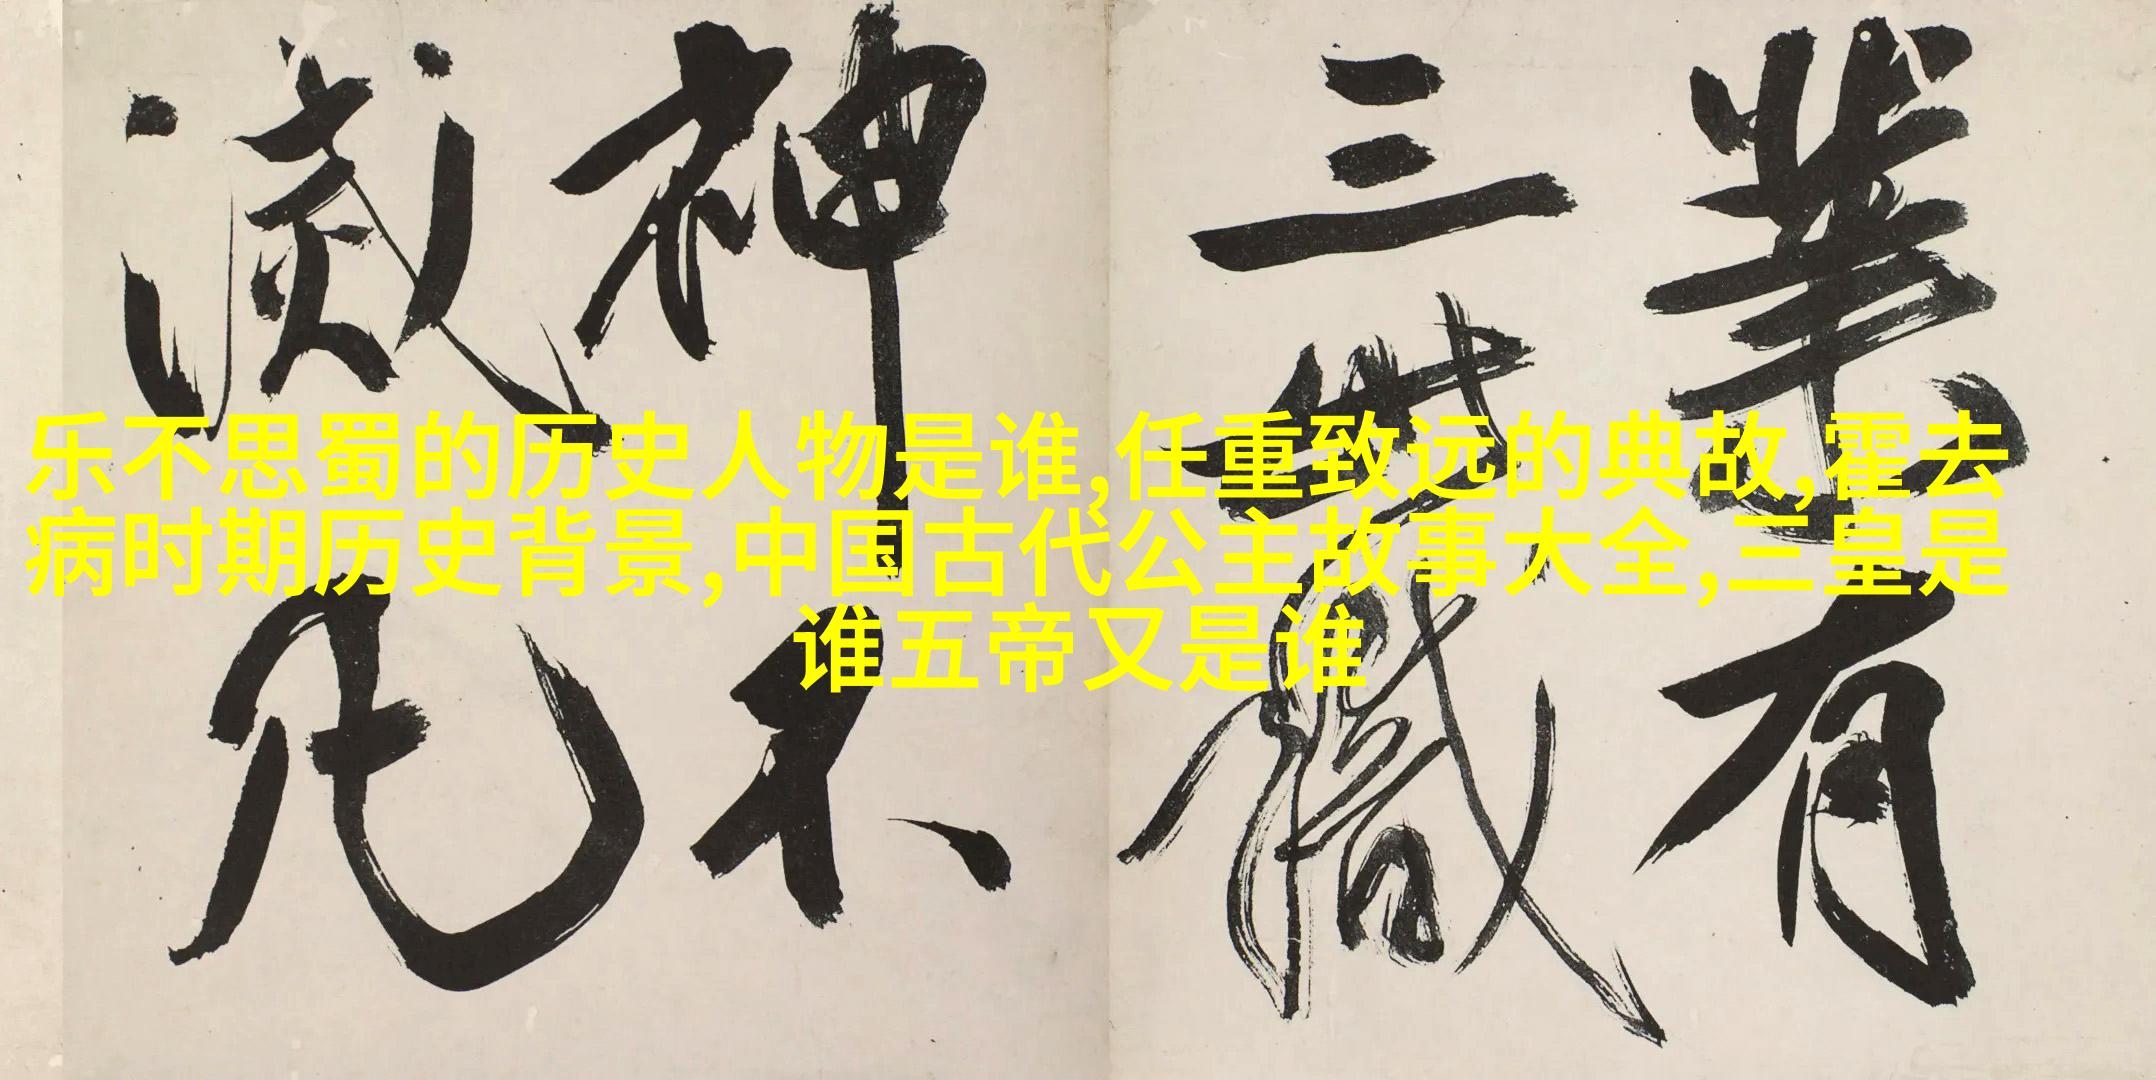 業有
三世職
神不
滅凡
乐不思蜀的历史人物是谁,任重致远的典故,霍去
病时期历史背景,中国古代公主故事大全,三皇是
谁五帝又是谁